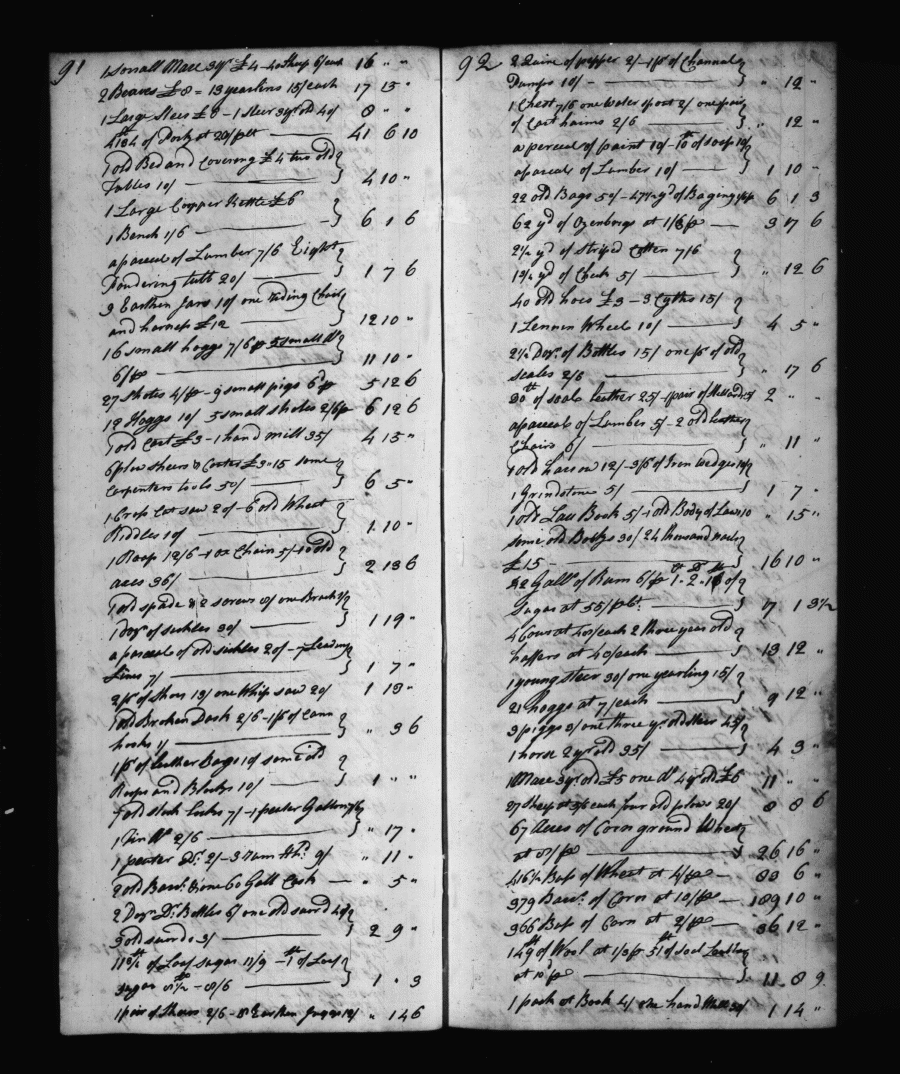 91
1 small Mare 3 yrs £4 - 40 Sheep 6/each 16 " "
2 Beaves £8 = 13 yearlins 15/each 17 15 "
1 Large Steer £6 - 1 Steer 3 yr old 40/ 8 " "
4134 lb of Pork at 20/pct 41 6 10
1 old Bed and Covering £4 two old
Tables 10/ 4 10 "
1 Large Copper Kettle £6
1 Bench 1/6 6 1 6
a parcel of Lumber 7/6 Eight
Powdering tubb 20/ 1 7 6
3 Earthen Jars 10/ one Riding Chair
and harness £12 12 10 "
16 small hoggs 7/6 p 5 small Do
6/p 11 10 "
27 Shotes 4/p - 9 small pigs 6d p 5 12 6
12 Hoggs 10/ 5 small shotes 2/6 p 6 12 6
1 old Cart £3 - 1 hand mill 35/ 4 15 "
6 plow shears & Coulters £3.15 some
Carpenters tools 50/ 6 5 "
1 Cross Cut saw 20/ - 6 old Wheat
Riddles 10/ 1 10 "
1 Roap 12/6 - 1 ox Chain 5/ - 10 old
axes 36/ 2 13 6
1 old spade & 2 screws 8/ one Broch 1/
1 Dozn of sickles 30/ 1 19 "
a parcel of old sickles 20/ - 7 Leading
Lines 7/ 1 7 "
2 pr of Shoes 13/ one Whip saw 20/ 1 13 "
1 old Broken Desk 2/6 - 1 pr of Cann
hooks 1/ " 3 6
1 pr of Leather Bags 10/ some old
Roaps and Blocks 10/ 1 " "
7 old stock Locks 7/ - 1 peuter Gallon 7/6
1 Tin Do 2/6 " 17 "
1 peuter Do. 2/ - 3 Tam Hhd. 9/ " 11 "
2 old Barrs. & one 60 Gall Cask " 5 "
2 Dozn Do. Bottles 6/ one old sword 40/
3 old swords 3/ 2 9 "
11 3/4 lb of Loaf sugar 11/9 - 1 lb of Loaf
sugar 8 1/2 - 8/6 1 " 3
1 pair of Shears 2/6 - 8 Earthen Juggs 12/ " 14 6
92
2 Quire of pepper 2/ - 1 pr of Channal
Pumps 10/ " 12 "
1 Chest 7/6 one Water spout 2/ one pair
of Cart hames 2/6 " 12 "
a parceal of paint 10/ - 10 lb of soap 10/
a parceal of Lumber 10/ 1 10 "
22 old Bags 50/ - 47 1/2 yd of Baging 6 1 3
62 yd of Ozenbergs at 1/3 p 3 17 6
2 1/2 yd of Striped Cotten 7/6
1 3/4 yd of Check 5/ " 12 6
40 old hoes £3 - 3 Cythes 15/
1 Lennen Wheel 10/ 4 5 "
2 1/2 Doz. of Bottles 15/ one pr of old
scales 2/6 " 17 6
20 lb of soale leather 25/ - 1 pair of 2 " "
a parceal of Lumber 5/ - 2 old leather
Chairs 6/ " 11 "
1 old harrow 12/ - 3 pr of Iron Wedges 10/
1 Grindstone 5/ 1 7 "
1 old Law Book 5/ - 1 old Body of Law 10 " 15 "
some old Books 30/ 24 thousand nails
£15 16 10 "
22 Galls. of Rum 6/p 1.2.18 of
Sugar at 55/pct. 17 1 3 1/2
4 Cows at 40/each 2 three year old
haffers at 40/each 13 12 "
1 young steer 30/ one yearling 15/
21 hoggs at 7/each 9 12 "
3 piggs 3/ one three yr. old Steer 45/
1 horse 2 yr old 35/ 4 3 "
1 Mare 3 yr old £5 one Do 4 yr old £6 11 " "
27 Sheep at 5/6 each four old plows 20/ 8 8 6
67 Acres of Corn ground Wheat
at 8/p 26 16 "
416 1/2 Bus of Wheat at 4/p 83 6 "
379 Barrs. of Corn at 10/p 189 10 "
366 Bus of Corn at 2/p 36 12 "
149 lb of Wool at 1/3 p 51 lb of soal Leather
at 10d p 11 8 9
1 pack of Book 4/ one hand Mill 30/ 1 14 "